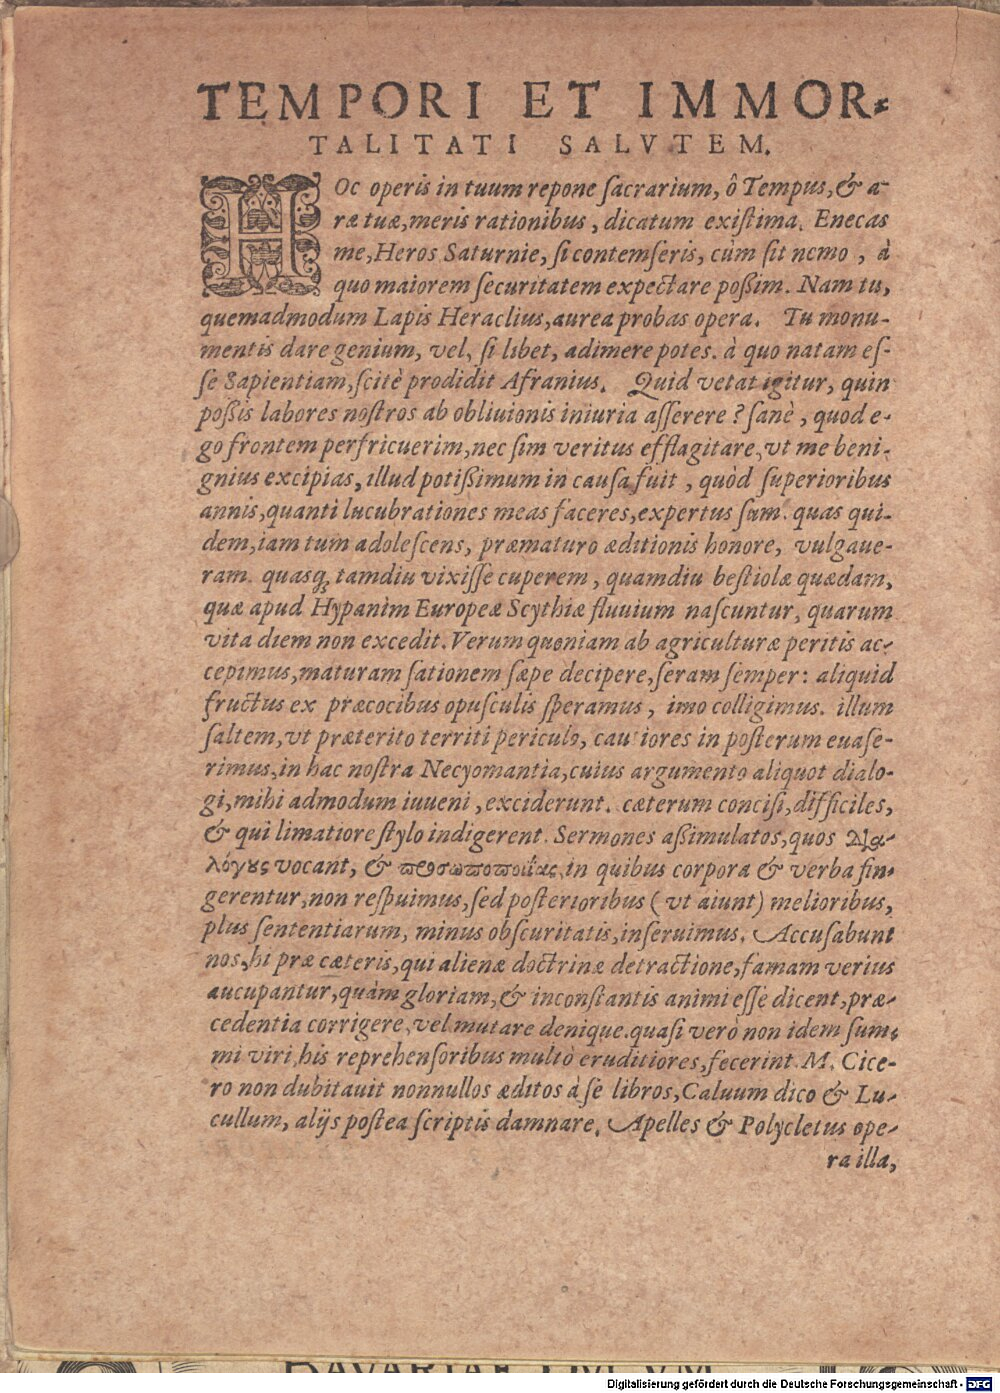 TEMPORI ET IMMOR-
TALITATI SALVTEM.
HOc operis in tuum repone ſacrarium, ô Tempus, & a-
ræ tuæ, meris rationibus, dicatum exiſtima. Enecas
me, Heros Saturnie, ſi contemſeris, cùm ſit nemo, à
quo maiorem ſecuritatem expectare poßim. Nam tu,
quemadmodum Lapis Heraclius, aurea probas opera. Tu monu-
mentis dare genium, vel, ſi libet, adimere potes. à quo natam eſ-
ſe Sapientiam, ſcitè prodidit Afranius. Quid vetat igitur, quin
poßis labores noſtros ab obliuionis iniuria aſſerere? ſanè, quod e-
go frontem perfricuerim, nec ſim veritus efflagitare, vt me beni-
gnius excipias, illud potißimum in cauſa fuit, quòd ſuperioribus
annis, quanti lucubrationes meas faceres, expertus ſum. quas qui-
dem, iam tum adoleſcens, præmaturo æditionis honore, vulgaue-
ram. quasq́; tamdiu vixiſſe cuperem, quamdiu beſtiolæ quædam,
quæ apud Hypanim Europeæ Scythiæ fluuium naſcuntur, quarum
vita diem non excedit. Verum quoniam ab agriculturæ peritis ac-
cepimus, maturam ſationem ſæpe decipere, ſeram ſemper: aliquid
fructus ex præcocibus opuſculis ſperamus, imo colligimus. illum
ſaltem, vt præterito territi periculo, cautiores in poſterum euaſe-
rimus, in hac noſtra Necyomantia, cuius argumento aliquot dialo-
gi, mihi admodum iuueni, exciderunt. cæterum conciſi, difficiles,
& qui limatiore ſtylo indigerent. Sermones aßimulatos, quos Δια-
λόγȣς vocant, & ϖροσωποποιΐας, in quibus corpora & verba fin-
gerentur, non reſpuimus, ſed poſterioribus (vt aiunt) melioribus,
plus ſententiarum, minus obſcuritatis, inſeruimus. Accuſabunt
nos, hi præ cæteris, qui alienæ doctrinæ detractione, famam verius
aucupantur, quàm gloriam, & inconſtantis animi eſſe dicent, præ-
cedentia corrigere, vel mutare denique. quaſi verò non idem ſum-
mi viri, his reprehenſoribus multò eruditiores, fecerint. M. Cice-
ro non dubitauit nonnullos æditos à ſe libros, Caluum dico & Lu-
cullum, alijs poſtea ſcriptis damnare. Apelles & Polycletus ope-
ra illa,
Digitalisierung gefördert durch die Deutsche Forschungsgemeinschaft - DFG